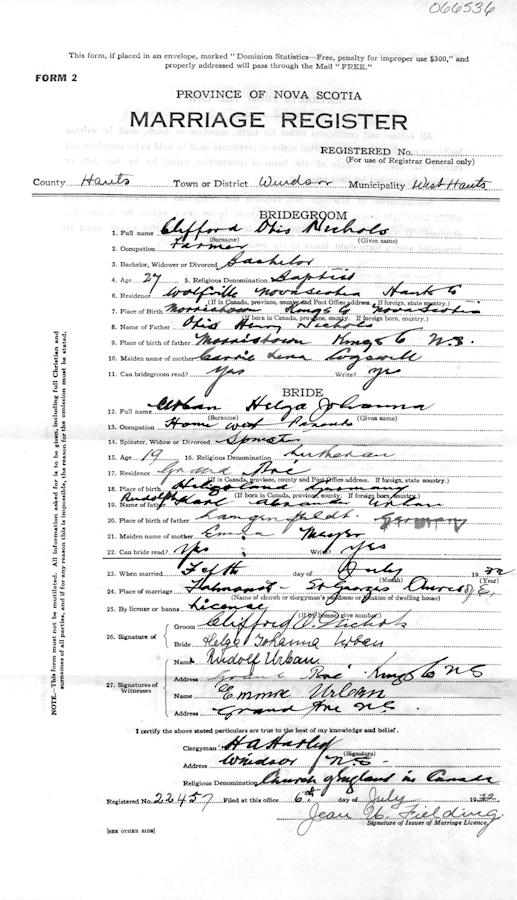 066536
This form, if placed in an envelope, marked "Dominion Statistics—Free, penalty for improper use $300," and
properly addressed will pass through the Mail "FREE."
FORM 2
PROVINCE OF NOVA SCOTIA
MARRIAGE REGISTER
REGISTERED No.
(For use of Registrar General only)
County Hants Town or District Windsor Municipality West Hants
BRIDEGROOM
1. Full name Clifford Otis Nichols
(Surname) (Given name)
2. Occupation Farmer
3. Bachelor, Widower or Divorced Bachelor
4. Age 27 5. Religious Denomination Baptist
6. Residence Wolfville Nova Scotia Hants Co
(If in Canada, province, county and Post Office address. If foreign, state country.)
7. Place of Birth Morristown Kings Co Nova Scotia
(If born in Canada, province, county. If foreign born, country.)
8. Name of Father Otis Henry Nichols
9. Place of birth of father Morristown Kings Co N.S.
10. Maiden name of mother Carrie Lena Cogswell
11. Can bridegroom read? Yes Write? Yes
BRIDE
12. Full name Urban Helga Johanna
(Surname) (Given name)
13. Occupation Home with Parents
14. Spinster, Widow or Divorced Spinster
15. Age 19 16. Religious Denomination Lutheran
17. Residence Grand Pré
(If in Canada, province, county and Post Office address. If foreign, state country.)
18. Place of birth Helgoland Germany
(If born in Canada, province, county. If foreign born, country.)
19. Name of father Rudolph Karl Alexander Urban
20. Place of birth of father Germany
21. Maiden name of mother Emma Meyer
22. Can bride read? Yes Write? Yes
23. When married Fifth of July 1932
(Month) (Year)
24. Place of marriage Falmouth - St Georges Church
(Name of church or clergyman's residence or notation of dwelling house)
25. By license or banns License
(If by license give number)
26. Signature of
Groom Clifford O. Nichols
Bride Helga Johanna Urban
27. Signatures of Witnesses
Name Rudolf Urban
Address Grand Pré Kings Co NS
Name Emma Urban
Address Grand Pre N.S.
I certify the above stated particulars are true to the best of my knowledge and belief.
Clergyman H A Harley
(Signature)
Address Windsor N.S.
Religious Denomination Church of England in Canada
Registered No. 22457 Filed at this office 6th day of July 1932
Jean U. Fielding
Signature of Issuer of Marriage Licence.
[SEE OTHER SIDE]
NOTE.—This form must not be mutilated. All information asked for is to be given, including full Christian and
surnames of all parties, and if for any reason this is impossible, the reason for the omission must be stated.